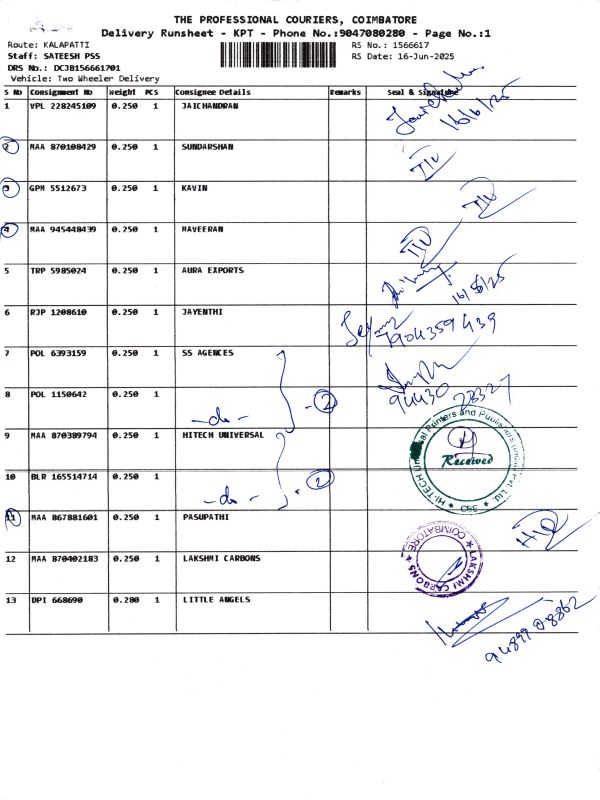 THE PROFESSIONAL COURIERS, COIMBATORE
Delivery Runsheet - KPT - Phone No.:9047080280 - Page No.:1
Route: KALAPATTI RS No.: 1566617
Staff: SATEESH PSS RS Date: 16-Jun-2025
DRS No.: DCJB156661701
Vehicle: Two Wheeler Delivery
S No Consignment No Weight PCS Consignee Details Remarks Seal & Signature
1 VPL 228245109 0.250 1 JAICHANDRAN
16/6/25
2 MAA 870108429 0.250 1 SUNDARSHAN
3 GPM 5512673 0.250 1 KAVIN
4 MAA 945448439 0.250 1 MAVEERAN
5 TRP 5985024 0.250 1 AURA EXPORTS
16/6/25
6 RJP 1208610 0.250 1 JAYENTHI
7904359439
7 POL 6393159 0.250 1 SS AGENCES
94430 28327
8 POL 1150642 0.250 1 -do- -2
9 MAA 870389794 0.250 1 HITECH UNIVERSAL
HI-TECH Universal Printers and Publishers Pvt. Ltd.
Received
CBE
10 BLR 165514714 0.250 1 -do- 2
11 MAA 867881601 0.250 1 PASUPATHI
12 MAA 870402183 0.250 1 LAKSHMI CARBONS
LAKSHMI CARBONS COIMBATORE
13 DPI 668690 0.280 1 LITTLE ANGELS